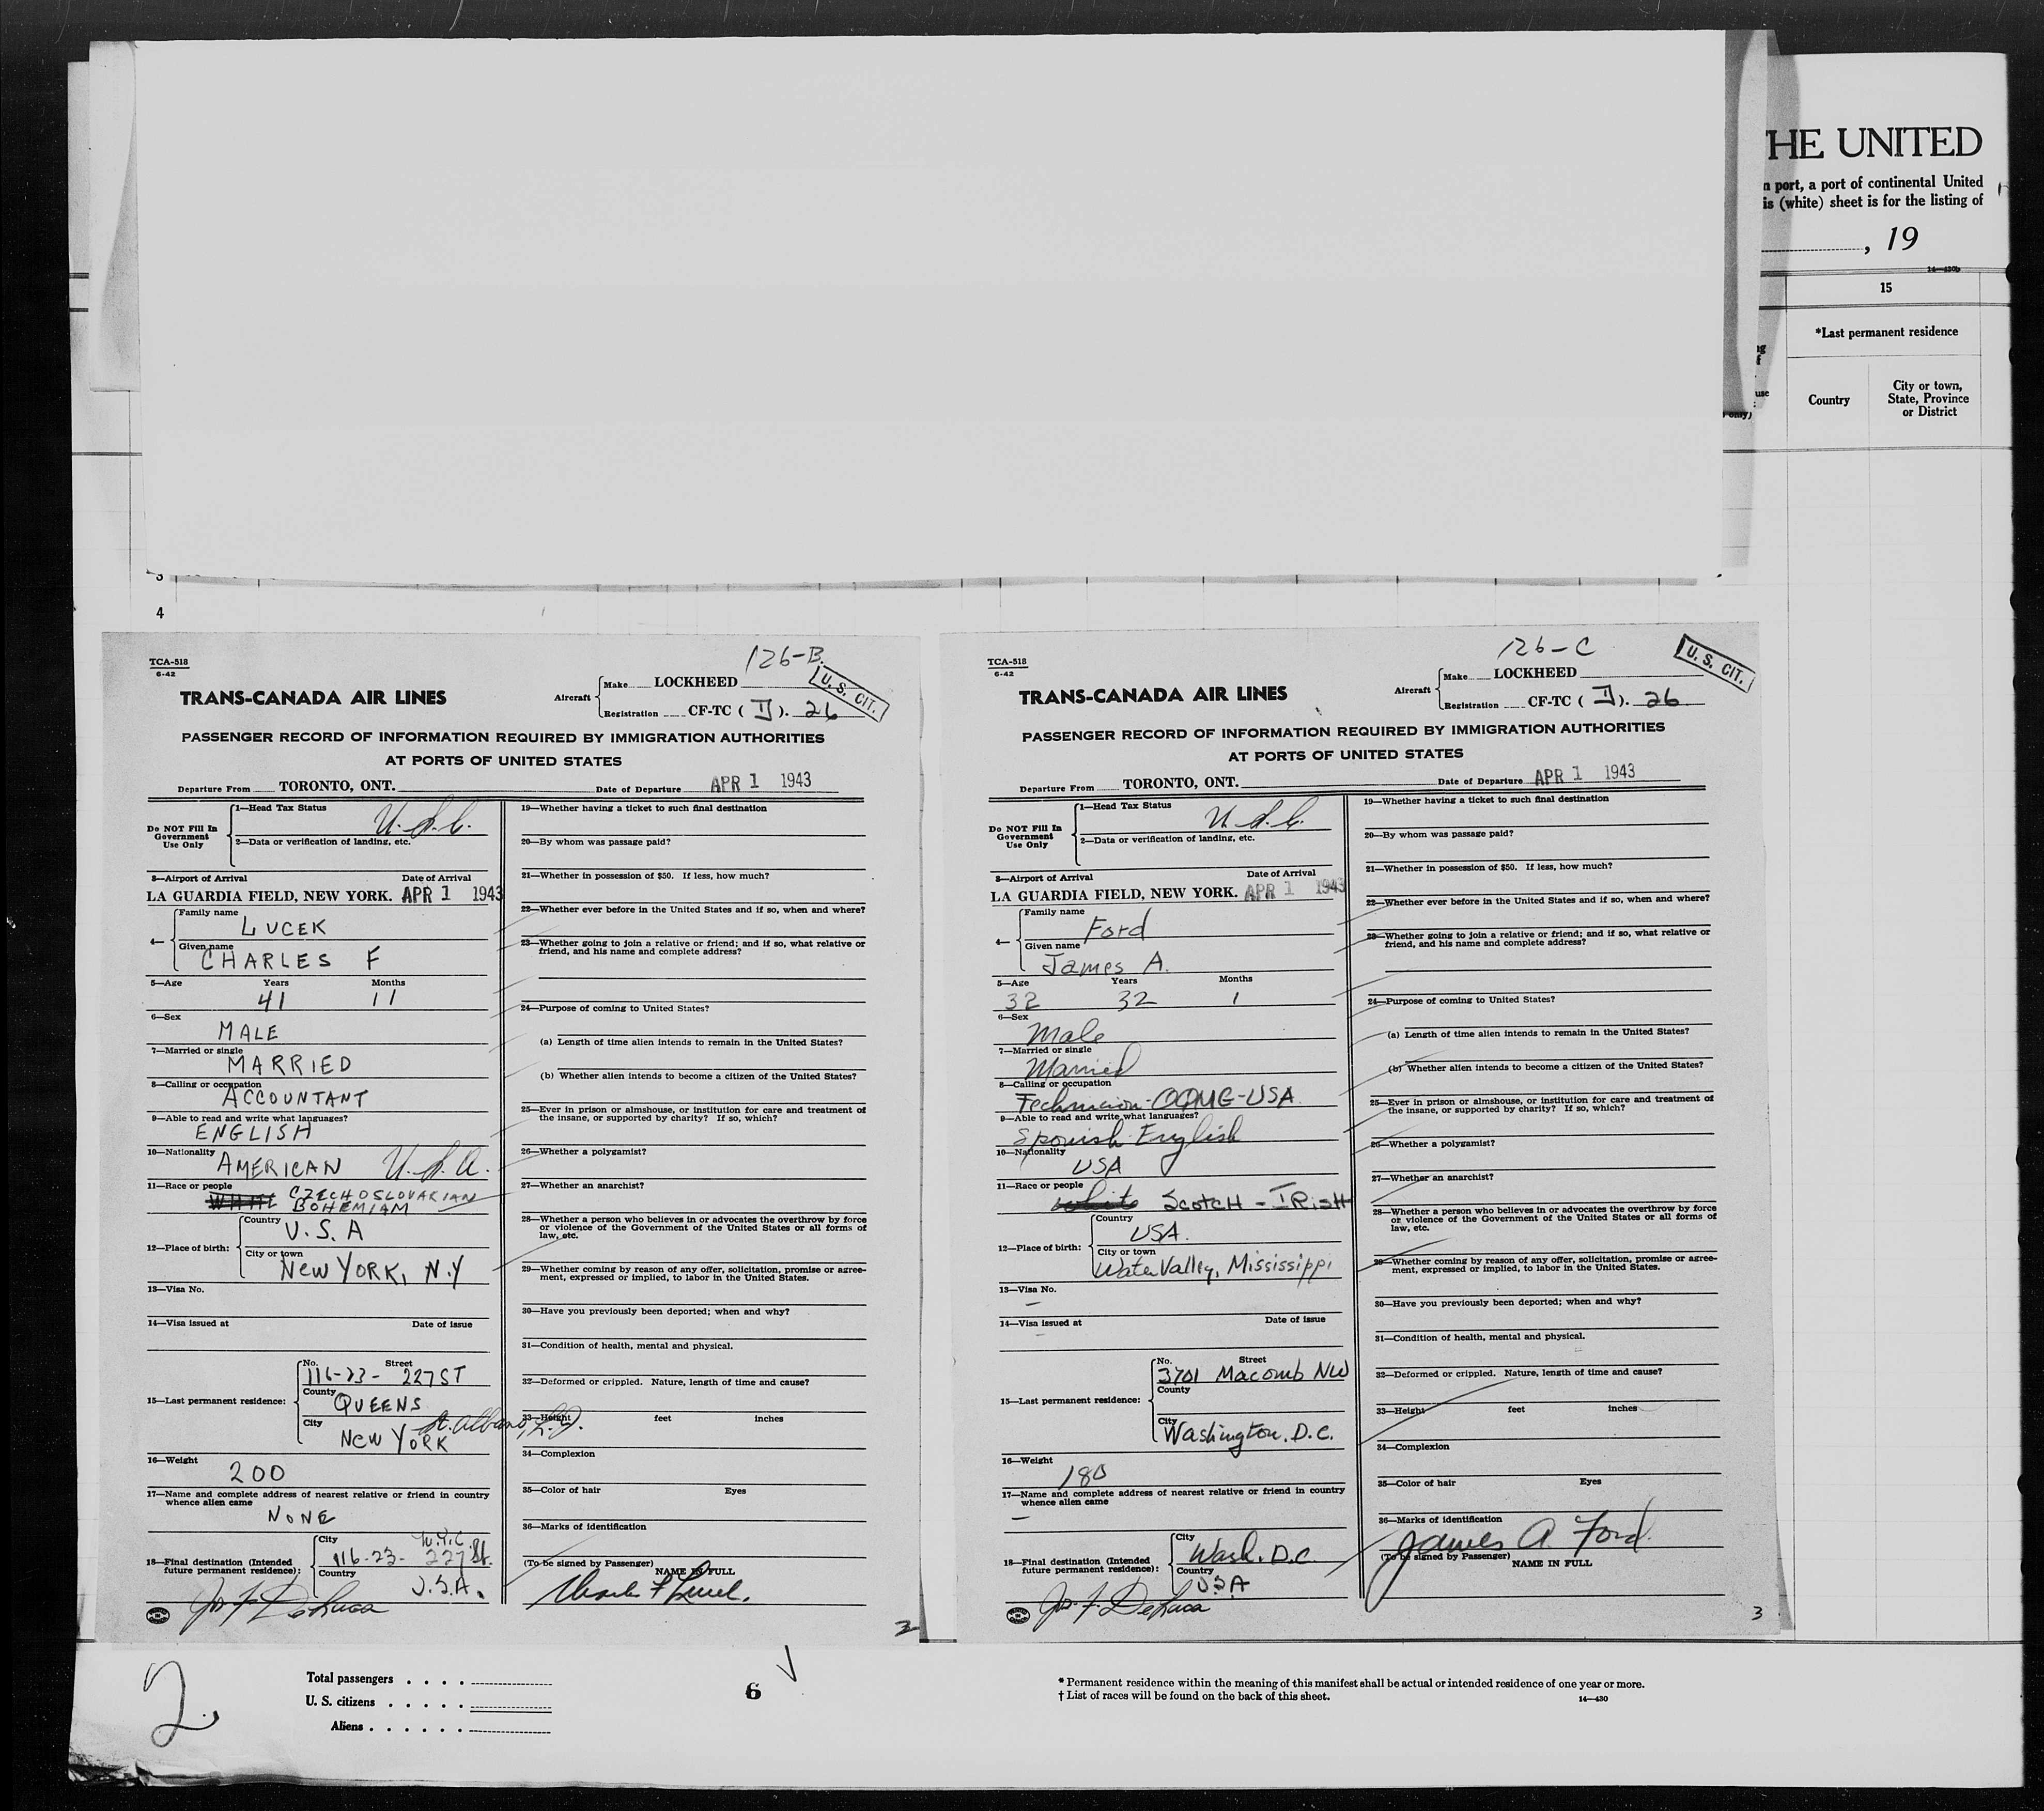 THE UNITED
n port, a port of continental United
is (white) sheet is for the listing of
, 19
14—430b
15
*Last permanent residence
Country
City or town,
State, Province
or District
only)
3
4
126-B
TCA-518
6-42
U. S. CIT.
TRANS-CANADA AIR LINES
Aircraft
Make LOCKHEED
Registration CF-TC ( ). 26
PASSENGER RECORD OF INFORMATION REQUIRED BY IMMIGRATION AUTHORITIES
AT PORTS OF UNITED STATES
Departure From TORONTO, ONT. Date of Departure APR 1 1943
Do NOT Fill In
Government
Use Only
1—Head Tax Status
U.S.C.
2—Data or verification of landing, etc.
3—Airport of Arrival Date of Arrival
LA GUARDIA FIELD, NEW YORK. APR 1 1943
4—
Family name
LUCEK
Given name
CHARLES F
5—Age Years Months
41 11
6—Sex
MALE
7—Married or single
MARRIED
8—Calling or occupation
ACCOUNTANT
9—Able to read and write what languages?
ENGLISH
10—Nationality
AMERICAN U.S.A.
11—Race or people
WHITE CZECHOSLOVAKIAN
BOHEMIAM
12—Place of birth:
Country
U.S.A
City or town
NEW YORK, N.Y
13—Visa No.
14—Visa issued at Date of issue
15—Last permanent residence:
No. Street
116-23- 227 ST
County
QUEENS
City St. Albans, L.I.
NEW YORK
16—Weight
200
17—Name and complete address of nearest relative or friend in country
whence alien came
NONE
18—Final destination (Intended
future permanent residence):
City N.Y.C.
116-23- 227 St.
Country
U.S.A.
Jos. F. DeLuca
19—Whether having a ticket to such final destination
20—By whom was passage paid?
21—Whether in possession of $50. If less, how much?
22—Whether ever before in the United States and if so, when and where?
23—Whether going to join a relative or friend; and if so, what relative or
friend, and his name and complete address?
24—Purpose of coming to United States?
(a) Length of time alien intends to remain in the United States?
(b) Whether alien intends to become a citizen of the United States?
25—Ever in prison or almshouse, or institution for care and treatment of
the insane, or supported by charity? If so, which?
26—Whether a polygamist?
27—Whether an anarchist?
28—Whether a person who believes in or advocates the overthrow by force
or violence of the Government of the United States or all forms of
law, etc.
29—Whether coming by reason of any offer, solicitation, promise or agree-
ment, expressed or implied, to labor in the United States.
30—Have you previously been deported; when and why?
31—Condition of health, mental and physical.
32—Deformed or crippled. Nature, length of time and cause?
33—Height feet inches
34—Complexion
35—Color of hair Eyes
36—Marks of identification
(To be signed by Passenger)
NAME IN FULL
Charles F Lucek.
2
126-C
TCA-518
6-42
U. S. CIT.
TRANS-CANADA AIR LINES
Aircraft
Make LOCKHEED
Registration CF-TC ( ). 26
PASSENGER RECORD OF INFORMATION REQUIRED BY IMMIGRATION AUTHORITIES
AT PORTS OF UNITED STATES
Departure From TORONTO, ONT. Date of Departure APR 1 1943
Do NOT Fill In
Government
Use Only
1—Head Tax Status
U.S.C.
2—Data or verification of landing, etc.
3—Airport of Arrival Date of Arrival
LA GUARDIA FIELD, NEW YORK. APR 1 1943
4—
Family name
Ford
Given name
James A.
5—Age Years Months
32 32 1
6—Sex
Male
7—Married or single
Married
8—Calling or occupation
Technician-OQMG-USA
9—Able to read and write what languages?
Spanish-English
10—Nationality
USA
11—Race or people
white SCOTCH - IRISH
12—Place of birth:
Country
USA.
City or town
Water Valley, Mississippi
13—Visa No.
—
14—Visa issued at Date of issue
—
15—Last permanent residence:
No. Street
3701 Macomb NW
County
City
Washington, D.C.
16—Weight
180
17—Name and complete address of nearest relative or friend in country
whence alien came
—
18—Final destination (Intended
future permanent residence):
City
Wash. D.C.
Country
USA
Jos. F. DeLuca
19—Whether having a ticket to such final destination
20—By whom was passage paid?
21—Whether in possession of $50. If less, how much?
22—Whether ever before in the United States and if so, when and where?
23—Whether going to join a relative or friend; and if so, what relative or
friend, and his name and complete address?
24—Purpose of coming to United States?
(a) Length of time alien intends to remain in the United States?
(b) Whether alien intends to become a citizen of the United States?
25—Ever in prison or almshouse, or institution for care and treatment of
the insane, or supported by charity? If so, which?
26—Whether a polygamist?
27—Whether an anarchist?
28—Whether a person who believes in or advocates the overthrow by force
or violence of the Government of the United States or all forms of
law, etc.
29—Whether coming by reason of any offer, solicitation, promise or agree-
ment, expressed or implied, to labor in the United States.
30—Have you previously been deported; when and why?
31—Condition of health, mental and physical.
32—Deformed or crippled. Nature, length of time and cause?
33—Height feet inches
34—Complexion
35—Color of hair Eyes
36—Marks of identification
James A. Ford.
(To be signed by Passenger)
NAME IN FULL
3
2.
Total passengers . . . .
U. S. citizens . . . . .
Aliens . . . . . .
6
* Permanent residence within the meaning of this manifest shall be actual or intended residence of one year or more.
† List of races will be found on the back of this sheet.
14—430